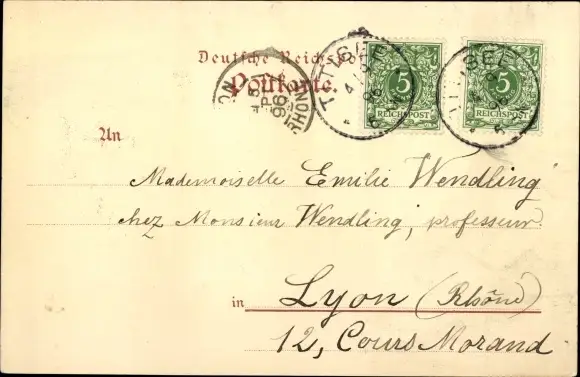 Deutsche Reichspost
Postkarte.
5
REICHSPOST
5
REICHSPOST
TITISEE
TITISEE
96
RHONE
An
Mademoiselle Emilie Wendling
chez Monsieur Wendling, professeur
in Lyon (Rhône)
12, Cours Morand